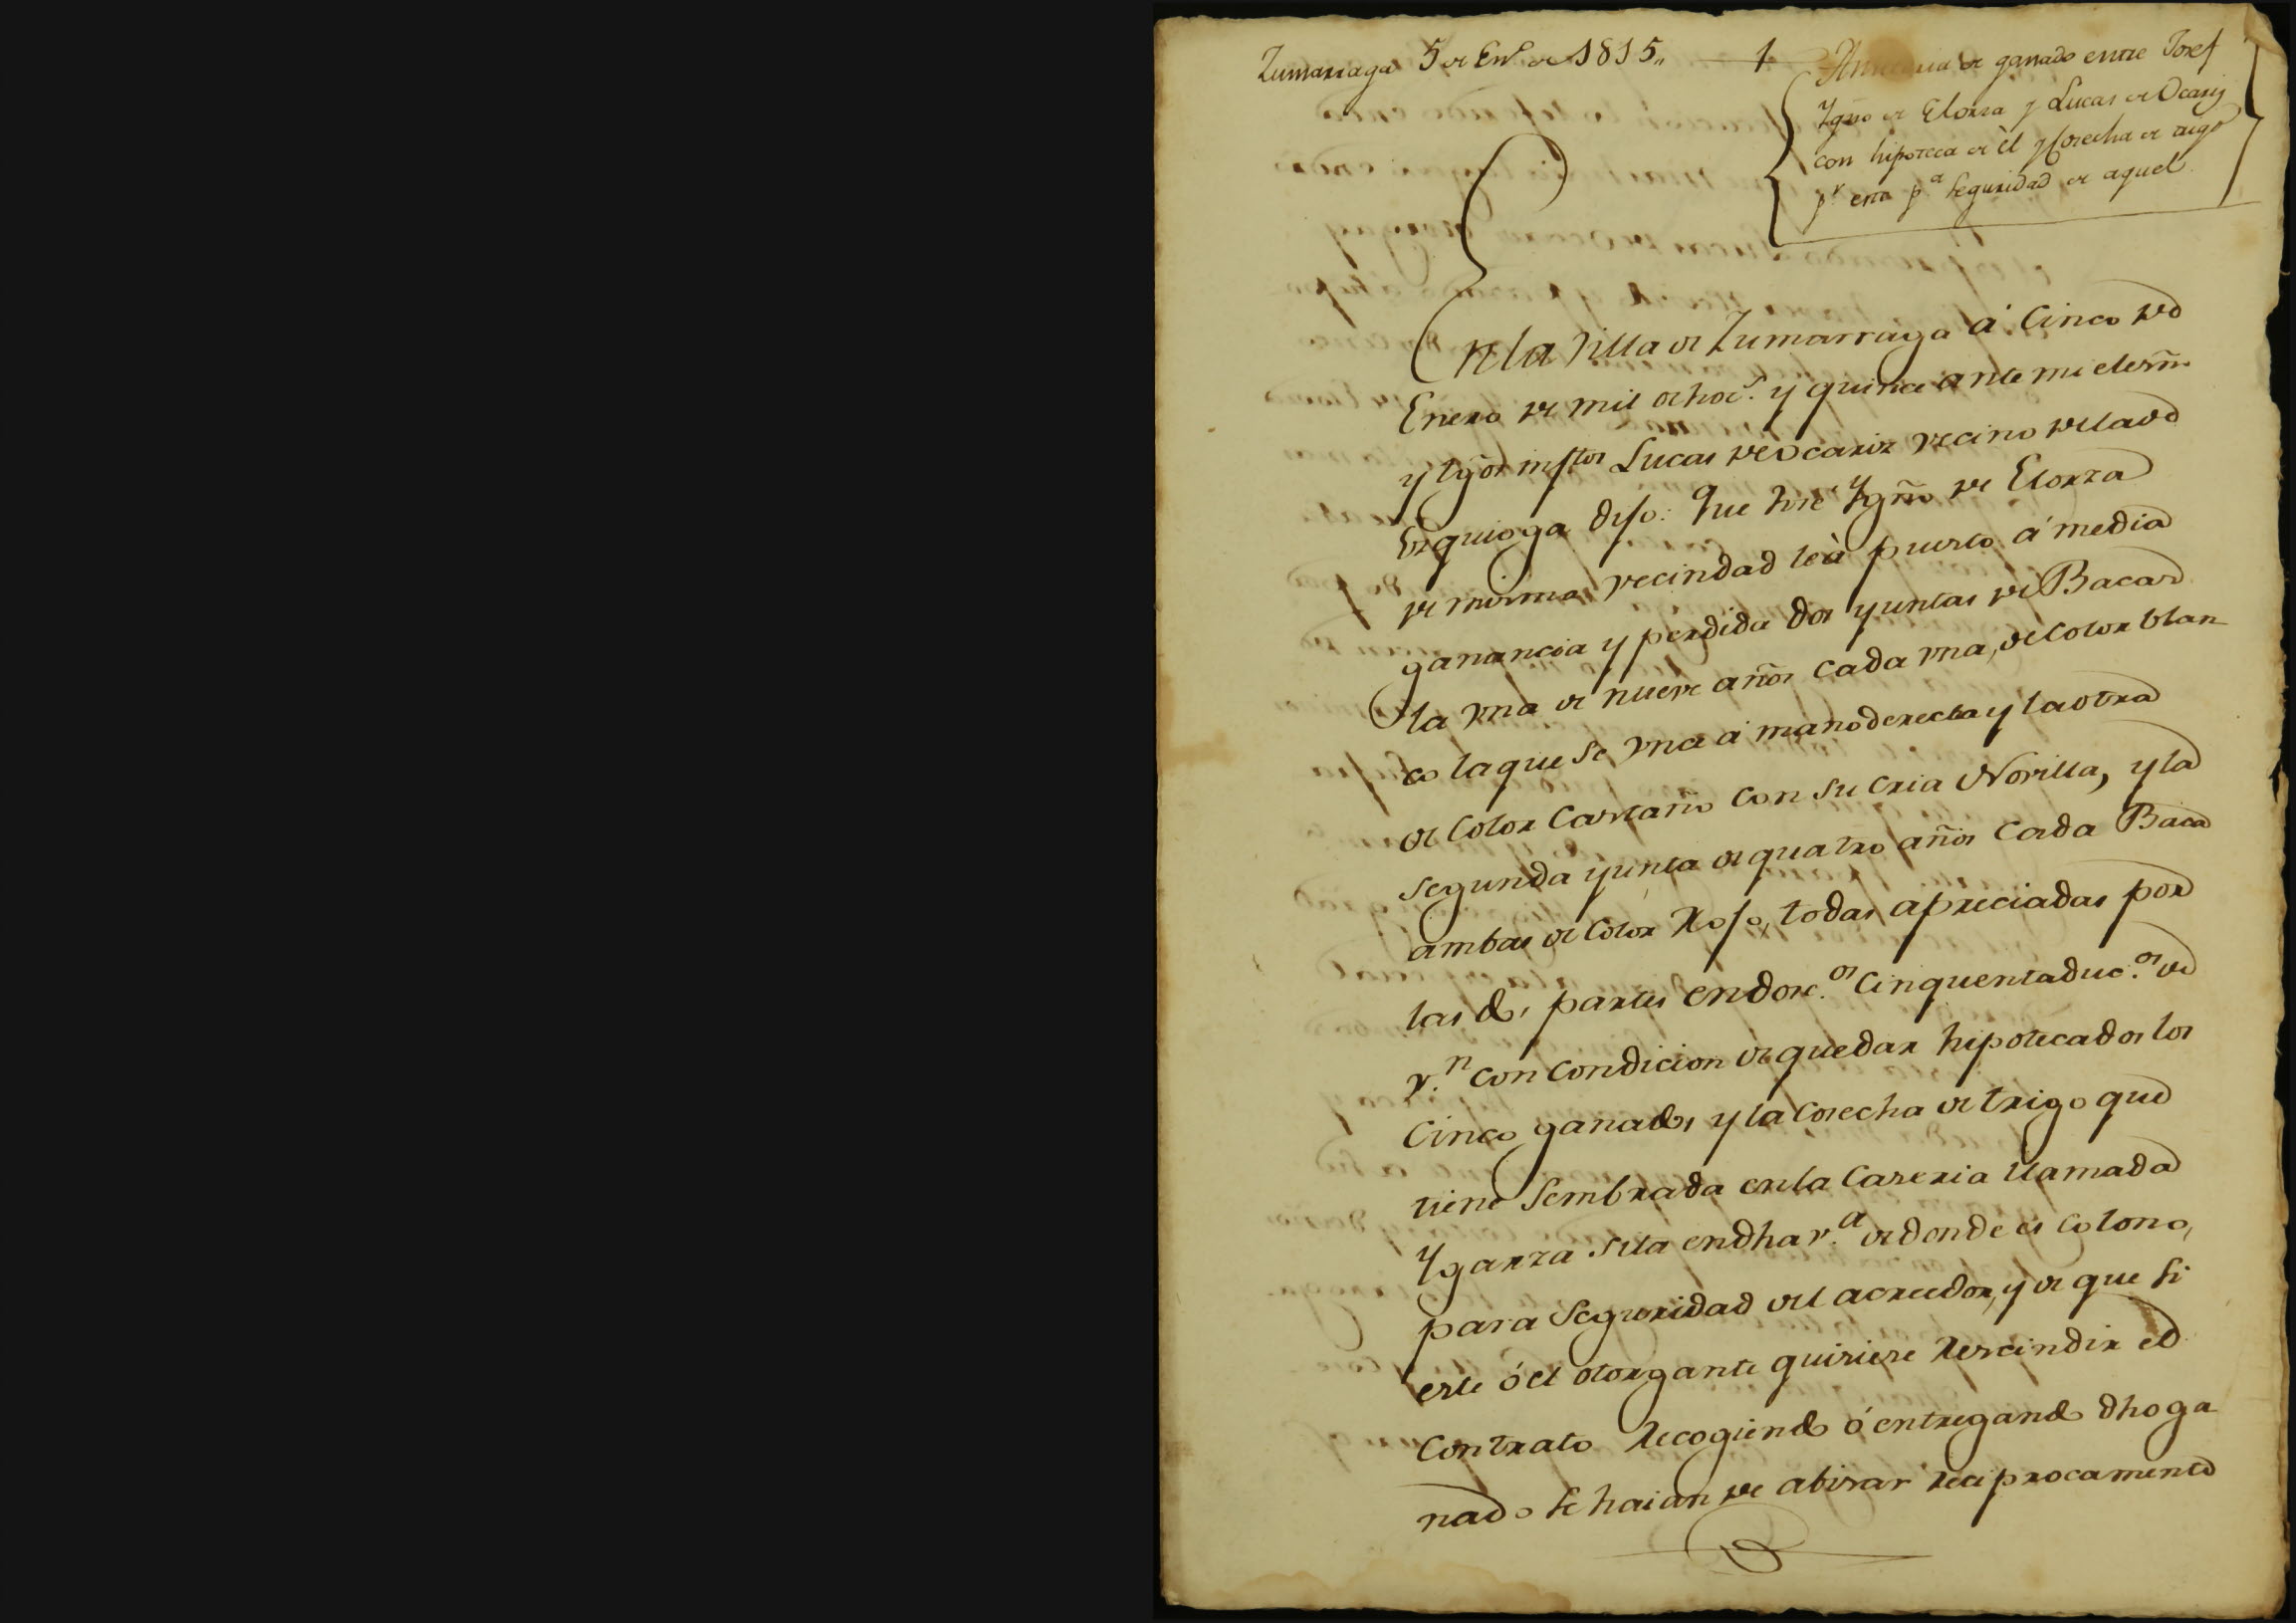 Zumarraga 5 de En.º de 1815,, 1
de ganado entre Josef
Ygn.o de Elorza y Lucas de Ocariz
con hipoteca de él y Cosecha de trigo
p.r este p.a seguridad de aquel
En la Villa de Zumarraga á Cinco de
Enero de mil ochoc.s y quince ante mi el esñ.o
y tgõs insftos Lucas de Ocariz vecino de la de
Ezquioga dijo: Que Jose Ygñ.o de Elorza
de misma vecindad le à puesto á media
ganancia y perdida dos yuntas de Bacas
la vna de nueve años cada vna, de Color blan
co la que se vnce á mano derecha y la otra
de Color Castaño con su cria Novilla, y la
segunda yunta de quatro años Cada Baca
ambas de Color Rojo, todas apreciadas por
las dos partes en dosc.os Cinquenta duc.os de
v.n con condicion de quedar hipotecados los
Cinco ganados y la Cosecha de trigo que
tiene Sembrada en la Caseria llamada
Ygarza sita en dha v.a de donde es Colono,
para Seguridad del acreedor, y de que si
este ó el otorgante quisiere Rescindir el
Contrato Recogiendo ó entregando dho ga
nado se haian de abisar reciprocamente